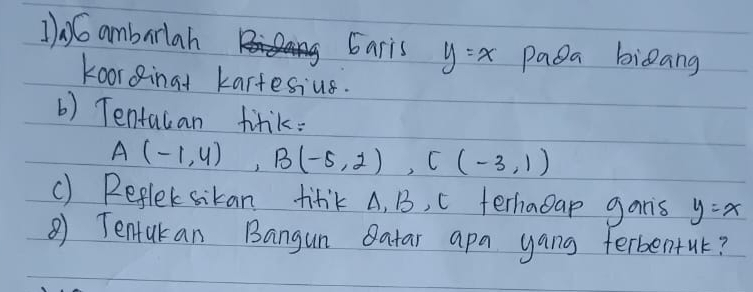 1)a) Gambarlah Bidang Garis y=x pada bidang
koordinat kartesius.
b) Tentukan titik:
A (-1,4) , B(-5,2) , C (-3,1)
c) Refleksikan titik A, B, C terhadap garis y=x
d) Tentukan Bangun datar apa yang terbentuk?